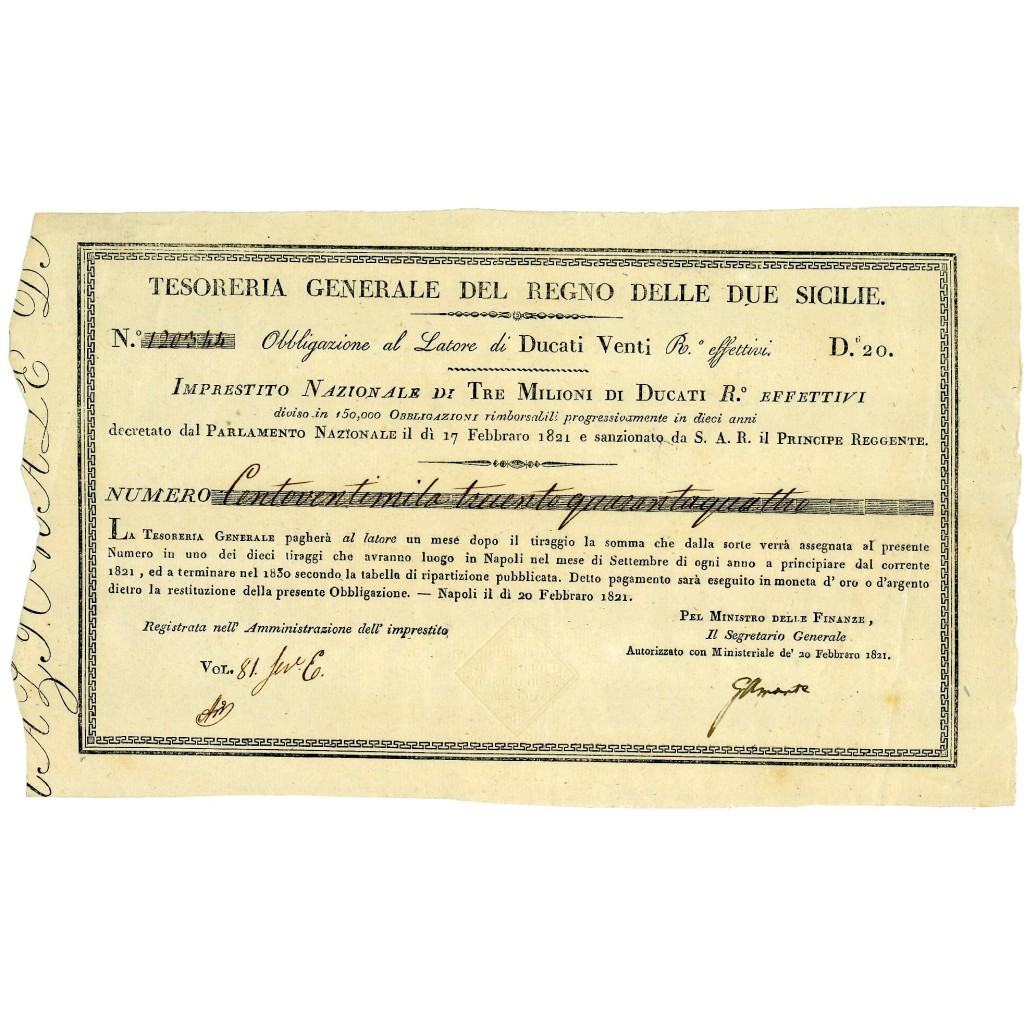 TESORERIA GENERALE DEL REGNO DELLE DUE SICILIE.
N.º 120344 Obbligazione al Latore di Ducati Venti R.º effettivi. D.ti 20.
IMPRESTITO NAZIONALE DI TRE MILIONI DI DUCATI R.º EFFETTIVI
diviso in 150,000 OBBLIGAZIONI rimborsalili progressivamente in dieci anni
decretato dal PARLAMENTO NAZIONALE il dì 17 Febbraro 1821 e sanzionato da S. A. R. il PRINCIPE REGGENTE.
NUMERO Centoventimila trecento quarantaquattro
LA TESORERIA GENERALE pagherà al latore un mese dopo il tiraggio la somma che dalla sorte verrà assegnata al presente
Numero in uno dei dieci tiraggi che avranno luogo in Napoli nel mese di Settembre di ogni anno a principiare dal corrente
1821, ed a terminare nel 1830 secondo la tabella di ripartizione pubblicata. Detto pagamento sarà eseguito in moneta d' oro o d'argento
dietro la restituzione della presente Obbligazione. — Napoli il dì 20 Febbraro 1821.
PEL MINISTRO DELLE FINANZE,
Registrata nell' Amministrazione dell' imprestito
Il Segretario Generale
Autorizzato con Ministeriale de' 20 Febbraro 1821.
VOL. 81.